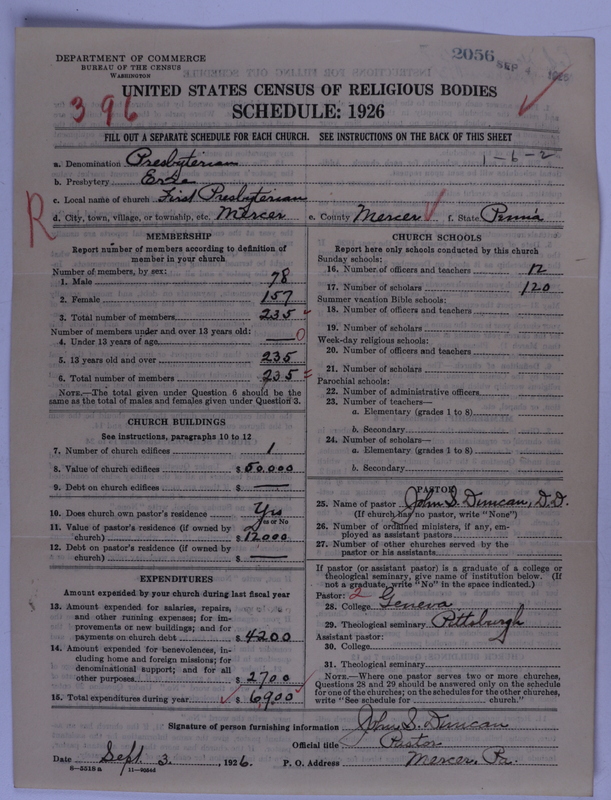 DEPARTMENT OF COMMERCE
BUREAU OF THE CENSUS
WASHINGTON
2056 SEP 4 1926
UNITED STATES CENSUS OF RELIGIOUS BODIES
396
SCHEDULE: 1926
FILL OUT A SEPARATE SCHEDULE FOR EACH CHURCH. SEE INSTRUCTIONS ON THE BACK OF THIS SHEET
a. Denomination Presbyterian 1-6-2
b. Presbytery Erie
c. Local name of church First Presbyterian
R
d. City, town, village, or township, etc. Mercer e. County Mercer f. State Penna
MEMBERSHIP
Report number of members according to definition of
member in your church
Number of members, by sex:
1. Male 78
2. Female 157
3. Total number of members 235
Number of members under and over 13 years old:
4. Under 13 years of age — 0
5. 13 years old and over 235
6. Total number of members 235
NOTE.—The total given under Question 6 should be the
same as the total of males and females given under Question 3.
CHURCH BUILDINGS
See instructions, paragraphs 10 to 12
7. Number of church edifices 1
8. Value of church edifices $ 50,000
9. Debt on church edifices $ —
10. Does church own pastor's residence? Yes
Yes or No
11. Value of pastor's residence (if owned by
church) $ 12000
12. Debt on pastor's residence (if owned by
church) $ —
EXPENDITURES
Amount expended by your church during last fiscal year
13. Amount expended for salaries, repairs,
and other running expenses; for im-
provements or new buildings; and for
payments on church debt $ 4200
14. Amount expended for benevolences, in-
cluding home and foreign missions; for
denominational support; and for all
other purposes $ 2700
15. Total expenditures during year $ 6900
CHURCH SCHOOLS
Report here only schools conducted by this church
Sunday schools:
16. Number of officers and teachers 12
17. Number of scholars 120
Summer vacation Bible schools:
18. Number of officers and teachers
19. Number of scholars
Week-day religious schools:
20. Number of officers and teachers
21. Number of scholars
Parochial schools:
22. Number of administrative officers
23. Number of teachers—
a. Elementary (grades 1 to 8)
b. Secondary
24. Number of scholars—
a. Elementary (grades 1 to 8)
b. Secondary
PASTOR
25. Name of pastor John S. Duncan, D.D.
(If church has no pastor, write "None")
26. Number of ordained ministers, if any, em-
ployed as assistant pastors
27. Number of other churches served by the
pastor or his assistants
If pastor (or assistant pastor) is a graduate of a college or
theological seminary, give name of institution below. (If
not a graduate, write "No" in the space indicated.)
Pastor: 2
28. College Geneva
29. Theological seminary Pittsburgh
Assistant pastor:
30. College
31. Theological seminary
NOTE.—Where one pastor serves two or more churches,
Questions 28 and 29 should be answered only on the schedule
for one of the churches; on the schedules for the other churches,
write "See schedule for church."
Signature of person furnishing information John S. Duncan
Official title Pastor
Date Sept. 3, 1926. P. O. Address Mercer, Pa.